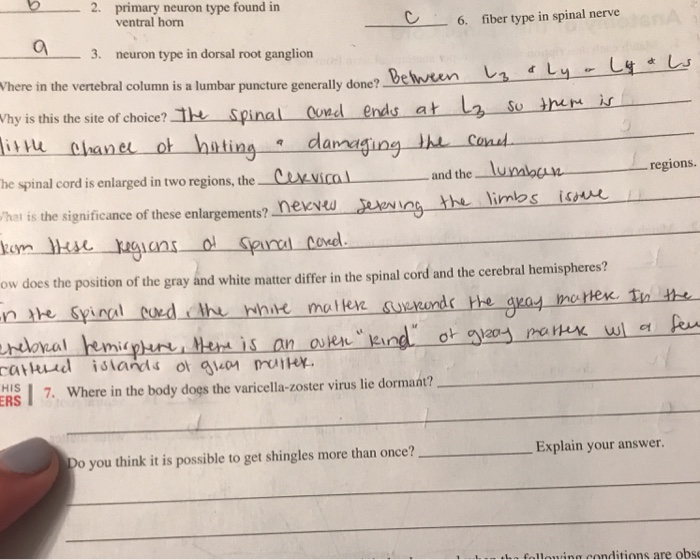 b 2. primary neuron type found in
ventral horn
c 6. fiber type in spinal nerve
a 3. neuron type in dorsal root ganglion
Where in the vertebral column is a lumbar puncture generally done? Between L3 & L4 or L4 & L5
Why is this the site of choice? The spinal cord ends at L3 so there is
little chance of hitting & damaging the cord.
he spinal cord is enlarged in two regions, the Cervical and the lumbar regions.
What is the significance of these enlargements? nerves serving the limbs issue
from these regions of spinal cord.
ow does the position of the gray and white matter differ in the spinal cord and the cerebral hemispheres?
In the spinal cord, the white matter surrounds the gray matter. In the
cerebral hemisphere, there is an outer "rind" of gray matter w/ a few
cattered islands of gray matter.
HIS
ERS 7. Where in the body does the varicella-zoster virus lie dormant?
Do you think it is possible to get shingles more than once? Explain your answer.
the following conditions are obs